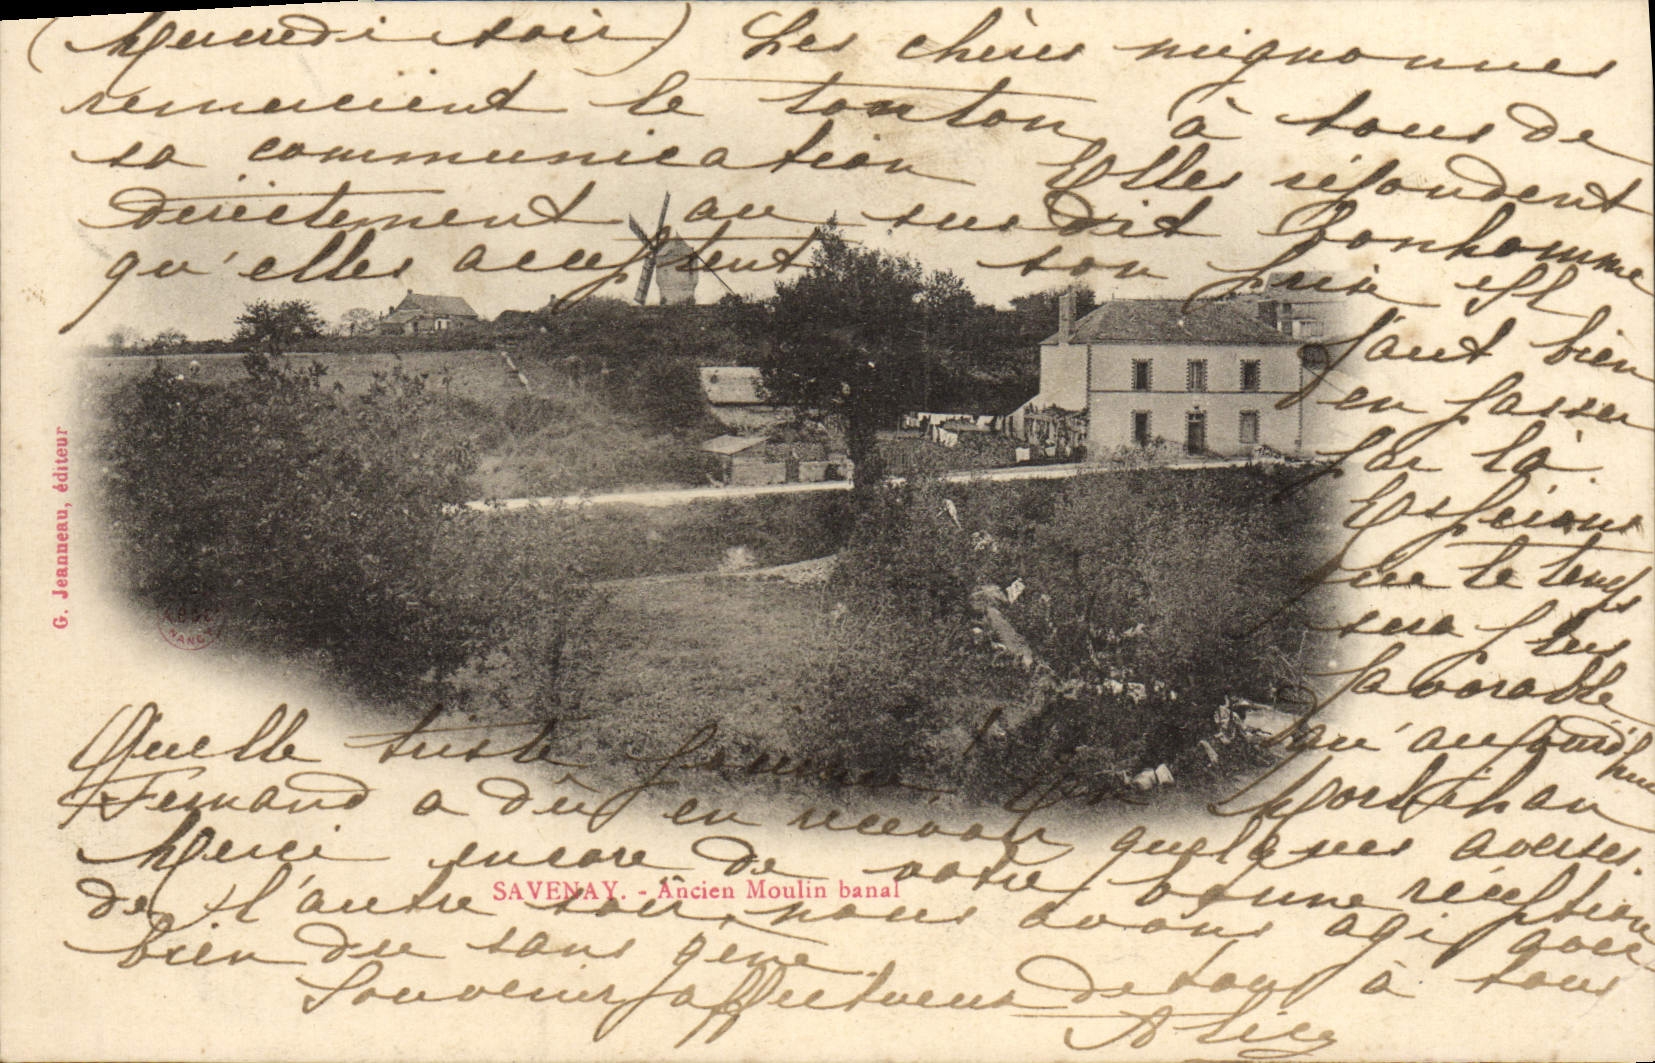 (Mercredi soir) Les chères mignonnes
remercient le tonton, à tous de
sa communication Elles répondent
directement au susdit Bonhomme
qu'elles acceptent son prix Il
faut bien
en passer
par là
Espérons
que le temps
sera plus
favorable
qu'aujourd'hui
Quelle triste journée ! Au Morbihan
Fernand a dû en recevoir quelques averses.
Merci encore de votre bonne réception
de l'autre soir, nous avons agi avec
bien du sans gêne
Souvenirs affectueux de tous à tous
Alice
G. Jeanneau, éditeur
SAVENAY. - Ancien Moulin banal
NANCY